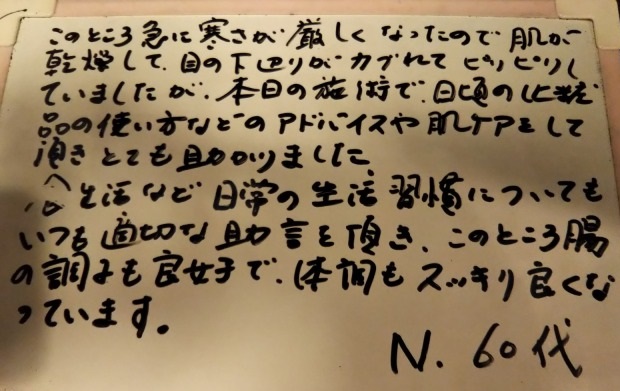 このところ急に寒さが厳しくなったので肌が
乾燥して、目の下辺りがカブれてピリピリし
ていましたが、本日の施術で、日頃の化粧
品の使い方などのアドバイスや肌ケアをして
頂きとても助かりました
食生活など日常の生活習慣についても
いつも適切な助言を頂き、このところ腸
の調子も良好で、体調もスッキリ良くな
っています。
N. 60代